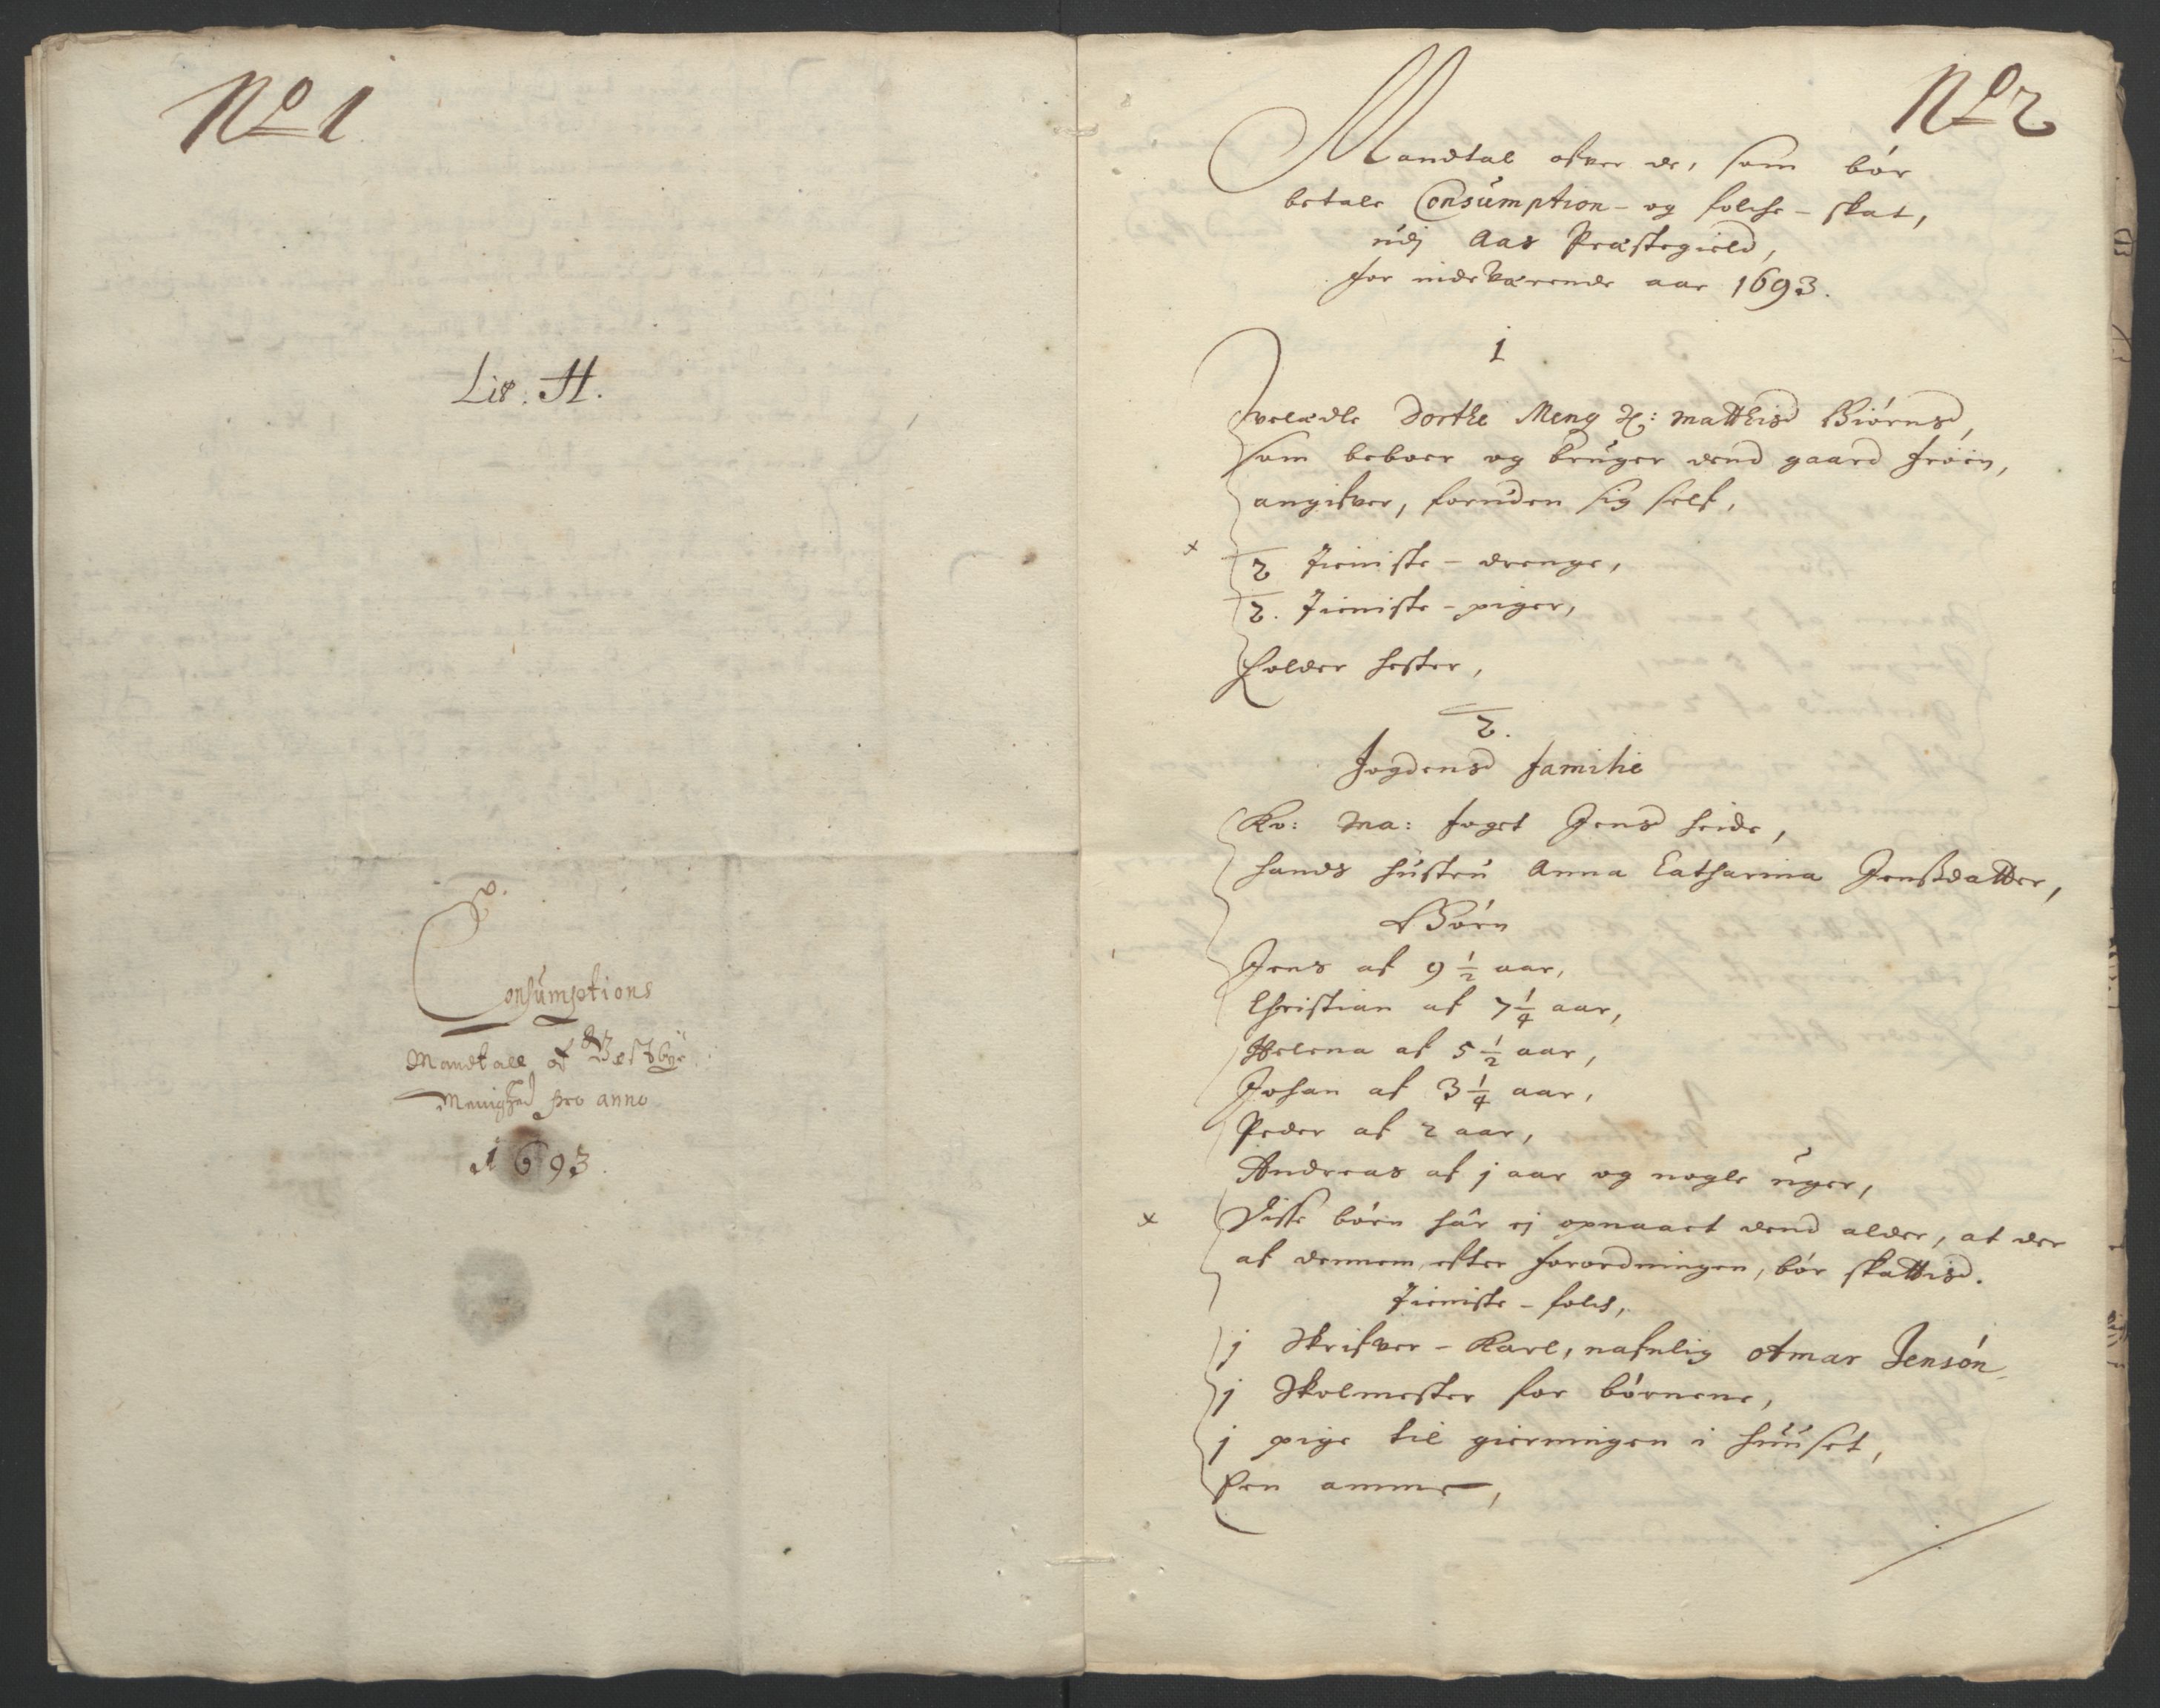 No 1
Lit. H.
Consumptions
Mandtall of Westbye
Menighed pro anno
1693.
No 2
Mandtal ofver de, som bór
betale Consumption- og folche-skat,
udj Aas Præstegield,
for indeværende aar 1693.
1
Velædle Dorthe Meng H: Matthisd Biórnsd,
som beboer og bruger dend gaard Fróen,
angifver, foruden sig self,
2 Tieniste-drenge,
2. Tieniste-piger,
Holder hester,
2.
Fogdensd Familie
Ko: Ma: foget Jensd heide,
hands hustru Anna Catharina Jenssdatter,
Bórn
Jens af 9 1/2 aar,
Christian af 7 1/4 aar,
Helena af 5 1/2 aar,
Johan af 3 1/4 aar,
Peder af 2 aar,
Andreas af j aar og nogle uger,
Disse bórn hâr ej opnaaet dend alder, at der
af dennem, efter forordningen, bór skattisd.
Tieniste-folch,
j Skrifver-Karl, nafnlig Otmar Jensón
j Skolmester for bórnene,
j pige til gierningen i huuset,
Een amme,